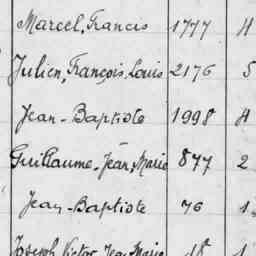 Marcel, Francis 1777 4
Julien, François, Louis 2176 5
Jean-Baptiste 1998 4
Guillaume, Jean, Marie 877 2
Jean-Baptiste 76 1
Joseph, Victor, Jean, Marie